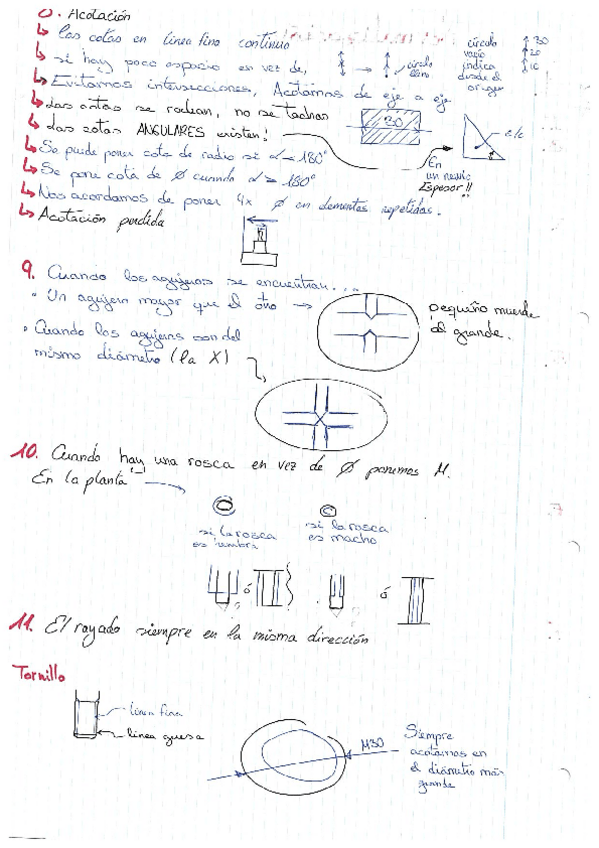 0. Acotación
↳ Las cotas en línea fina continua
↳ si hay poco espacio en vez de,
círculo lleno
círculo vacio indica desde el origen
30
20
10
↳ Evitamos intersecciones, Acotamos de eje a eje
↳ Las cotas se rodean, no se tachan
30
↳ Las cotas ANGULARES existen!
En un nervio Espesor!!
↳ Se puede poner cota de radio si α < 180°
↳ Se pone cota de ∅ cuando α ≥ 180°
↳ Nos acordamos de poner 4x ∅ en elementos repetidos.
↳ Acotación perdida
9. Cuando los agujeros se encuentran...
• Un agujero mayor que el otro →
pequeño muerde al grande.
• Cuando los agujeros son del
mismo diámetro (la X)
10. Cuando hay una rosca en vez de ∅ ponemos M.
En la planta
si la rosca
es hembra
si la rosca
es macho
ó
ó
11. El rayado siempre en la misma dirección
Tornillo
línea fina
línea guesa
M30
Siempre
acotamos en
el diámetro más
grande